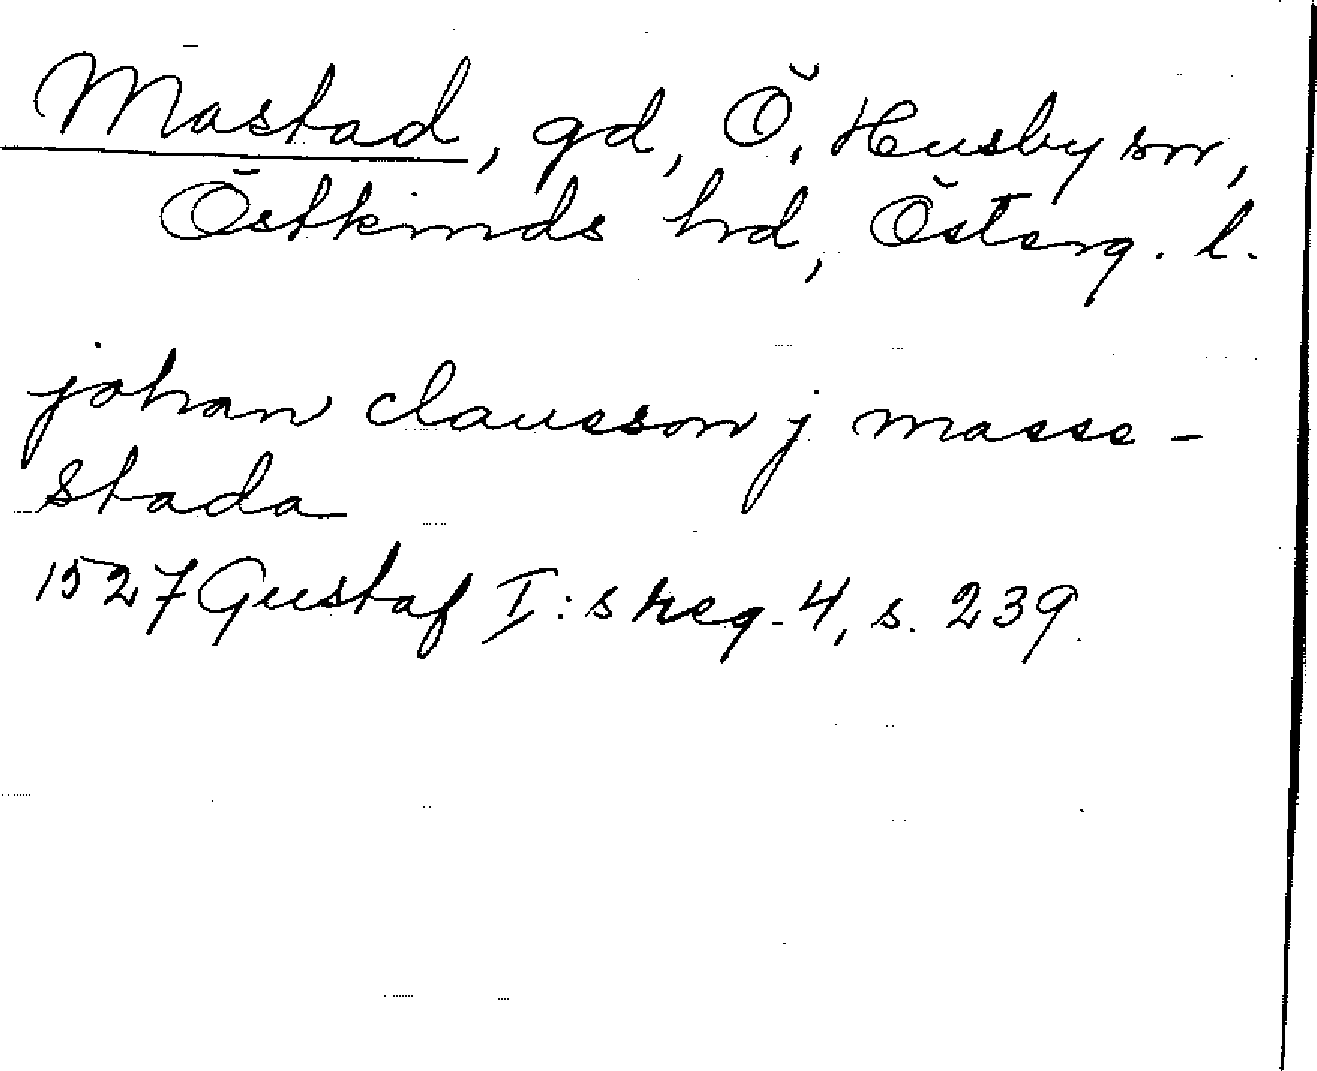 Mastad, gd, Ö. Husby sn,
Östkinds hd, Österg. l.
johan clausson j masse-
stada
1527 Gustaf I:s reg. 4, s. 239.